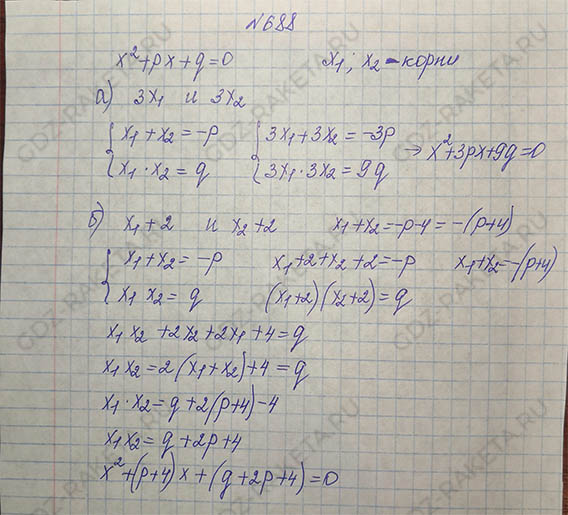 №688
x²+px+q=0 x₁; x₂ - корни
а) 3x₁ и 3x₂
{ x₁+x₂=-p { 3x₁+3x₂=-3p
{ x₁·x₂=q { 3x₁·3x₂=9q → x²+3px+9q=0
б) x₁+2 и x₂+2 x₁+x₂=-p-4=-(p+4)
{ x₁+x₂=-p x₁+2+x₂+2=-p x₁+x₂=-(p+4)
{ x₁x₂=q (x₁+2)(x₂+2)=q
x₁x₂+2x₂+2x₁+4=q
x₁x₂=2(x₁+x₂)+4=q
x₁·x₂=q+2(p+4)-4
x₁x₂=q+2p+4
x²+(p+4)x+(q+2p+4)=0
GDZ-RAKETA.RU